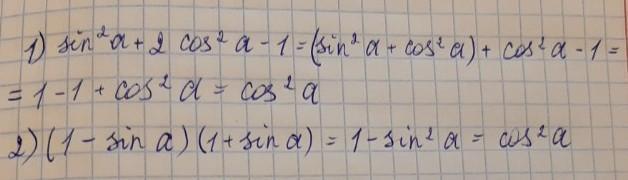 1) sin²a + 2 cos²a - 1 = (sin²a + cos²a) + cos²a - 1 =
= 1 - 1 + cos²a = cos²a
2) (1 - sin a)(1 + sin a) = 1 - sin²a = cos²a